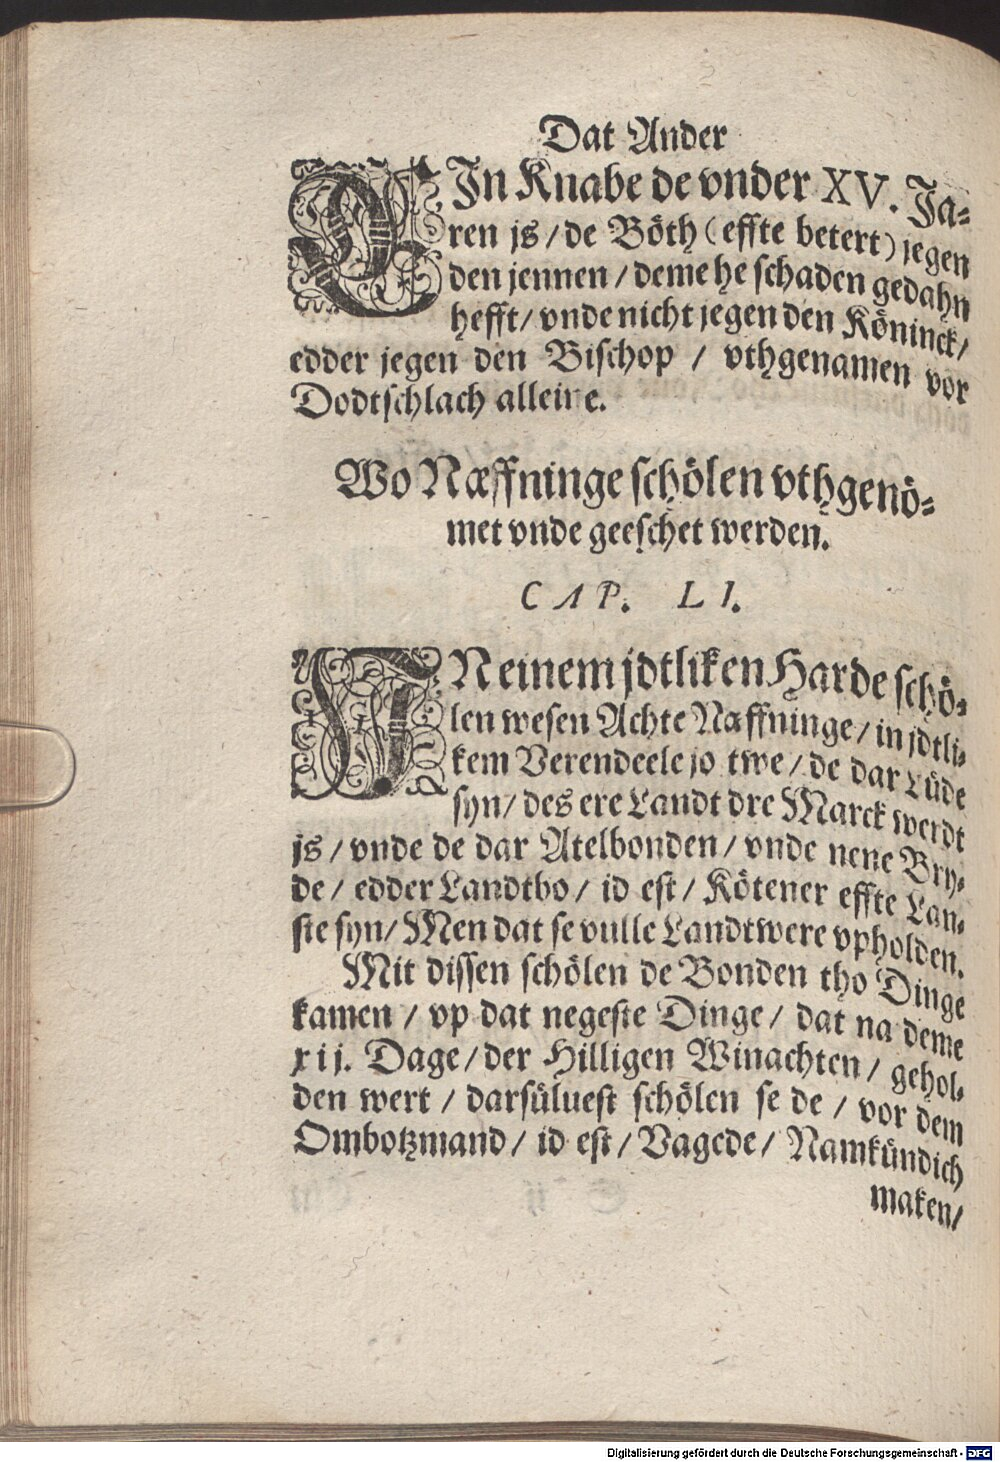 Dat Ander
EJn Knabe de vnder XV. Ja-
ren js / de Böth (effte betert) jegen
den jennen / deme he schaden gedahn
hefft / vnde nicht jegen den Köninck /
edder jegen den Bischop / vthgenamen vor
Dodtschlach alleine.
Wo Næffninge schölen vthgenö-
met vnde geeschet werden.
CAP. LI.
JN einem jdtliken Harde schö-
len wesen Achte Næffninge / in jdtli-
kem Verendeele jo twe / de dar Lüde
syn / des ere Landt dre Marck werdt
js / vnde de dar Atelbonden / vnde nene Bry-
de / edder Landtbo / id est / Kötener effte Lan-
ste syn / Men dat se vulle Landtwere vpholden.
Mit dissen schölen de Bonden tho Dinge
kamen / vp dat negeste Dinge / dat na deme
xij. Dage / der Hilligen Winachten / gehol-
den wert / darsüluest schölen se de / vor dem
Ombotzmand / id est / Vagede / Namkündich
maken /
Digitalisierung gefördert durch die Deutsche Forschungsgemeinschaft - DFG